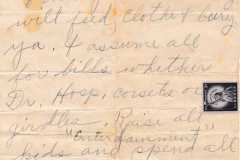 will feed, clothe & bury
ya. I assume all
for bills whether
Dr. Hosp. corsets or
girdles. Raise all
"entertainment"
kids and spend all